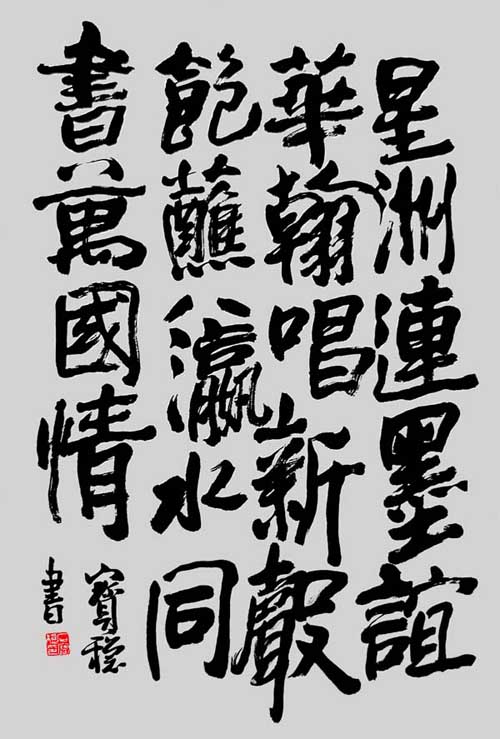 星洲連墨誼
華翰唱新聲
飽蘸瀛水同
書萬國情
寶穩
書